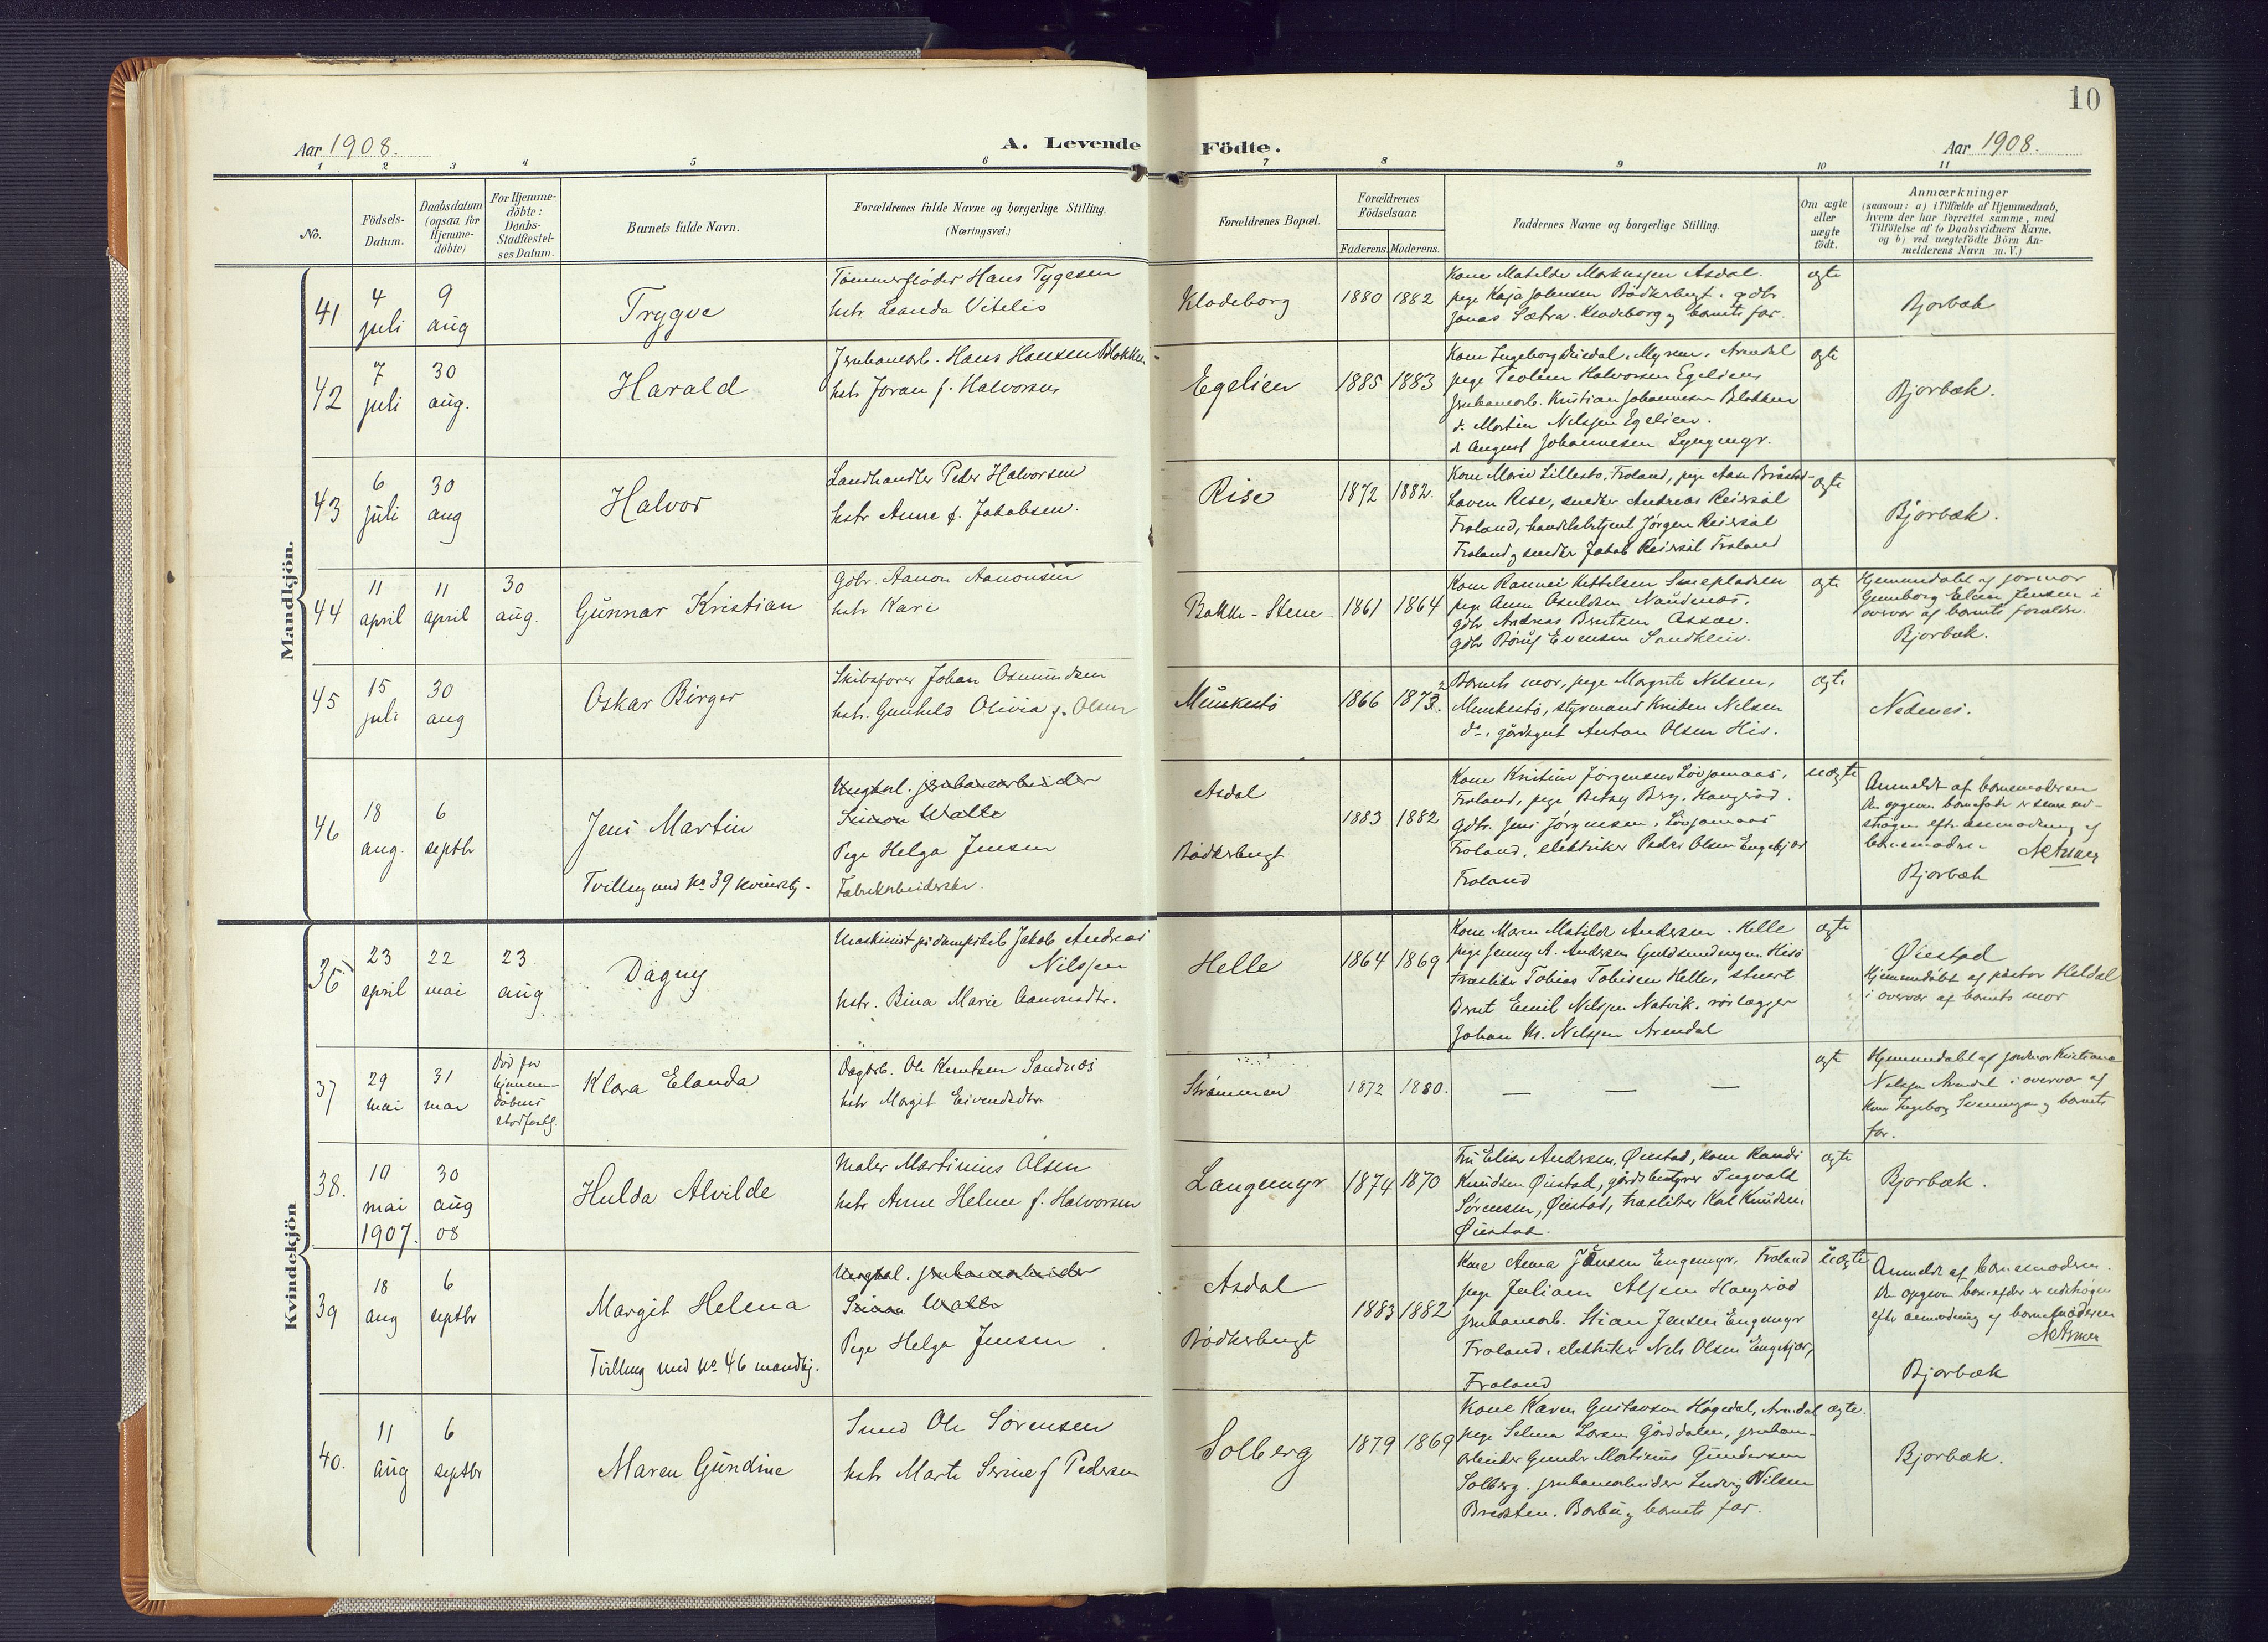 10
Aar 1908.
A. Levende Födte.
Aar 1908.
1 2 3 4 5 6 7 8 9 10 11
No.
Födsels-
Datum.
Daabsdatum
(ogsaa for
Hjemme-
döbte)
For Hjemme-
döbte:
Daabs-
Stadfæstel-
ses Datum.
Barnets fulde Navn.
Forældrenes fulde Navne og borgerlige Stilling.
(Næringsvei.)
Forældrenes Bopæl.
Forældrenes
Födselsaar.
Faderens. Moderens.
Faddernes Navne og borgerlige Stilling.
Om ægte
eller
uægte
födt.
Anmærkninger
(saasom: a) i Tilfælde af Hjemmedaab,
hvem der har forrettet samme, med
Tilföielse af to Daabsvidners Navne.
og b) ved uægtefödte Börn An-
melderens Navn m. V.)
Mandkjön.
41
4
juli
9
aug
Trygve
Tømmerfløder Hans Tygesen
hstr Leanda Vitelis
Klodeborg
1880 1882
Kone Matilde Markussen Asdal.
pige Kaja Johnsen Bödkerbugt, gdbr
Jonas Sætra. Klodeborg og barnets far.
ægte
Bjorbæk
42
7
juli
30
aug.
Harald
Jernbanearb. Hans Hansen Blakken
hstr Joran f. Halvorsen
Egelien
1885 1883
Kone Ingeborg Myren. Arendal
pige Teoline Halvorsen Egelien,
jernbanearb. Kristian Johannesen Blakken
do. Martin Nilssen Egelien.
do August Johannesen Lyngmyr.
ægte
Bjorbæk.
43
6
juli
30
aug
Halvor
Landhandler Peder Halvorsen
hstr Anne f. Jakobsen.
Rise
1872 1882.
Kone Marie Lillestø, Froland, pige Aase Bråstad-
haven Rise, snedker Andreas Reiersøl
Froland, handelsbetjent Jörgen Reiersøl
Froland og snedker Jakob Reiersøl Froland
ægte
Bjorbæk.
44
11
april
11
april
30
aug.
Gunnar Kristian
Gdbr. Aanon Aanonsen
hstr Kari
Bakke-Stene
1861 1864
Kone Rannei Kettelsen Smepladsen
pige Anne Osuldsen Naudenes.
gdbr Andreas Berntsen Assæv.
gdbr Börüf Evensen Sandkleiv.
ægte
Hjemmedøbt af jormor
Gunborg Elene Jensen i
overvær af barnets forældre.
Bjorbæk.
45
15
juli
30
aug
Oskar Birger
Skibsfører Johan Osmundsen
hstr. Gunhild Olivia f. Olsen
Munkestø
1866 1872.
Barnets mor, pige Margrete Nelsen,
Munkestø, styrmand Kristen Nelsen
do, gårdsgut Anton Olsen His.
ægte
Nedenes.
46
18
aug.
6
septbr
Jens Martin
Tvilling med No 39 kvindekj.
Ungkarl. jernbanearbeider
Simon Walle
Pige Helga Jensen
Fabrikarbeiderske.
Asdal
Bödkerbugt
1883 1882
Kone Kristine Jörgensen Lövjomaas,
Froland, pige Betzy Berg, Haugeröd.
Gdbr. Jens Jörgensen, Lövjomaas
Froland, elektriker Peder Olsen Engekjær
Froland
uægte
Anmeldt af barnemoderen
Den opgivne barnefader er senere ud-
strøgen efter anmodning af
barnemoderen
Bjorbæk
Kvindekjön
36
23
april
22
mai
23
aug
Dagny
Maskinist på dampskib Jakob Andreas
Nilssen
hstr. Bina Marie Aanonsdtr.
Helle
1864 1869
Kone Maren Matilde Andersen. Helle
pige Jenny A. Andersen Guldsmedmyren Hisö
træsliber Tobias Tobisen Helle, stuert
Bernt Emil Nilssen Natvik. rörlægger
Johan M. Nilssen Arendal
ægte
Øiestad
Hjemmedøbt af pastor Heldal
i overvær af barnets mor
37
29
mai
31
mai
Död før
hjemme-
dåbens
stadfæst.
Klara Elanda
Dagarb. Ole Knutsen Sandnæs
hstr Margit Eivendsdtr.
Strømmen
1872 1880.
— — —
ægte
Hjemmedøbt af jordmor Kristiane
Nilssen Arendal i overvær af
Kone Ingeborg og barnets
far.
38.
10
mai
1907.
30
aug
08
Hulda Alvilde
Maler Martinius Olsen
hstr Anne Helene f. Halvorsen
Langemyr
1874 1870
Fru Elise Andersen, Øiestad, kone Randi
Knudsen Øiestad, gårdsbestyrer Ingvald
Sörensen, Øiestad, træsliber Karl Knudsen
Øiestad.
ægte
Bjorbæk.
39
18
aug
6
septbr
Margit Helena
Tvilling med No 46 mandkj.
Ungkarl. jernbanearbeider
Simon Walle
Pige Helga Jensen
Asdal
Bödkerbugt
1883 1882
Kone Anna Jensen Engemyr, Froland
pige Juliane Alfsen Haugeröd
jernbanearb. Stian Jensen Engemyr
Froland, elektriker Nels Olsen Engekjær,
Froland
uægte
Anmeldt af barnemoderen.
Den opgivne barnefader er udstrøgen
efter anmodning af barnemoderen
Bjorbæk
40.
11
aug
6
septbr
Maren Gundine
Smed Ole Sörensen
hstr Marte Serine f Pedersen
Solberg
1879 1869
Kone Karen Gustavsen Høgedal, Arendal
pige Selma Larsen Gårddalen, jernban-
arbeider Gunder Martinius Gundersen
Solberg. jernbanearbeider Ludvig Nilsen
Bredsten. Barbu og barnets far.
ægte.
Bjorbæk.